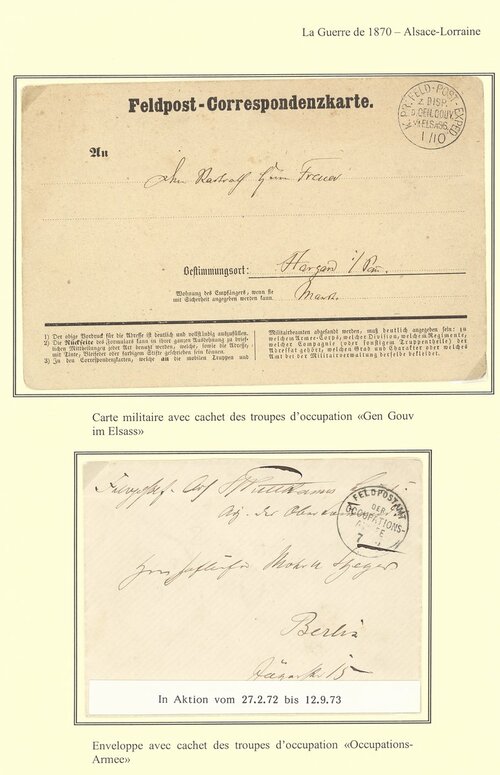 La Guerre de 1870 – Alsace-Lorraine
Feldpost-Correspondenzkarte.
K. PR. FELD-POST-EXPED
2 DISP.
D. GEN. GOUV.
ELSASS.
1/10
An
Herrn
Bestimmungsort:
Wohnung des Empfängers, wenn sie
mit Sicherheit angegeben werden kann.
1) Der obige Vordruck für die Adresse ist deutlich und vollständig auszufüllen.
2) Die Rückseite des Formulars kann in ihrer ganzen Ausdehnung zu brief-
lichen Mittheilungen jeder Art benutzt werden, welche, sowie die Adresse,
mit Tinte, Bleifeder oder farbigem Stifte geschrieben sein können.
3) Zu den Correspondenzkarten, welche an die mobilen Truppen und
Militairbeamten abgesandt werden, muß deutlich angegeben sein: zu
welchem Armee-Corps, welcher Division, welchem Regimente,
welcher Compagnie (oder sonstigem Truppentheile) der
Adressat gehört, welchen Grad und Charakter oder welches
Amt bei der Militairverwaltung derselbe bekleidet.
Carte militaire avec cachet des troupes d'occupation «Gen Gouv
im Elsass»
FELDPOSTAMT
DER
OCCUPATIONS-
ARMEE
7
Berlin
15
In Aktion vom 27.2.72 bis 12.9.73
Enveloppe avec cachet des troupes d'occupation «Occupations-
Armee»